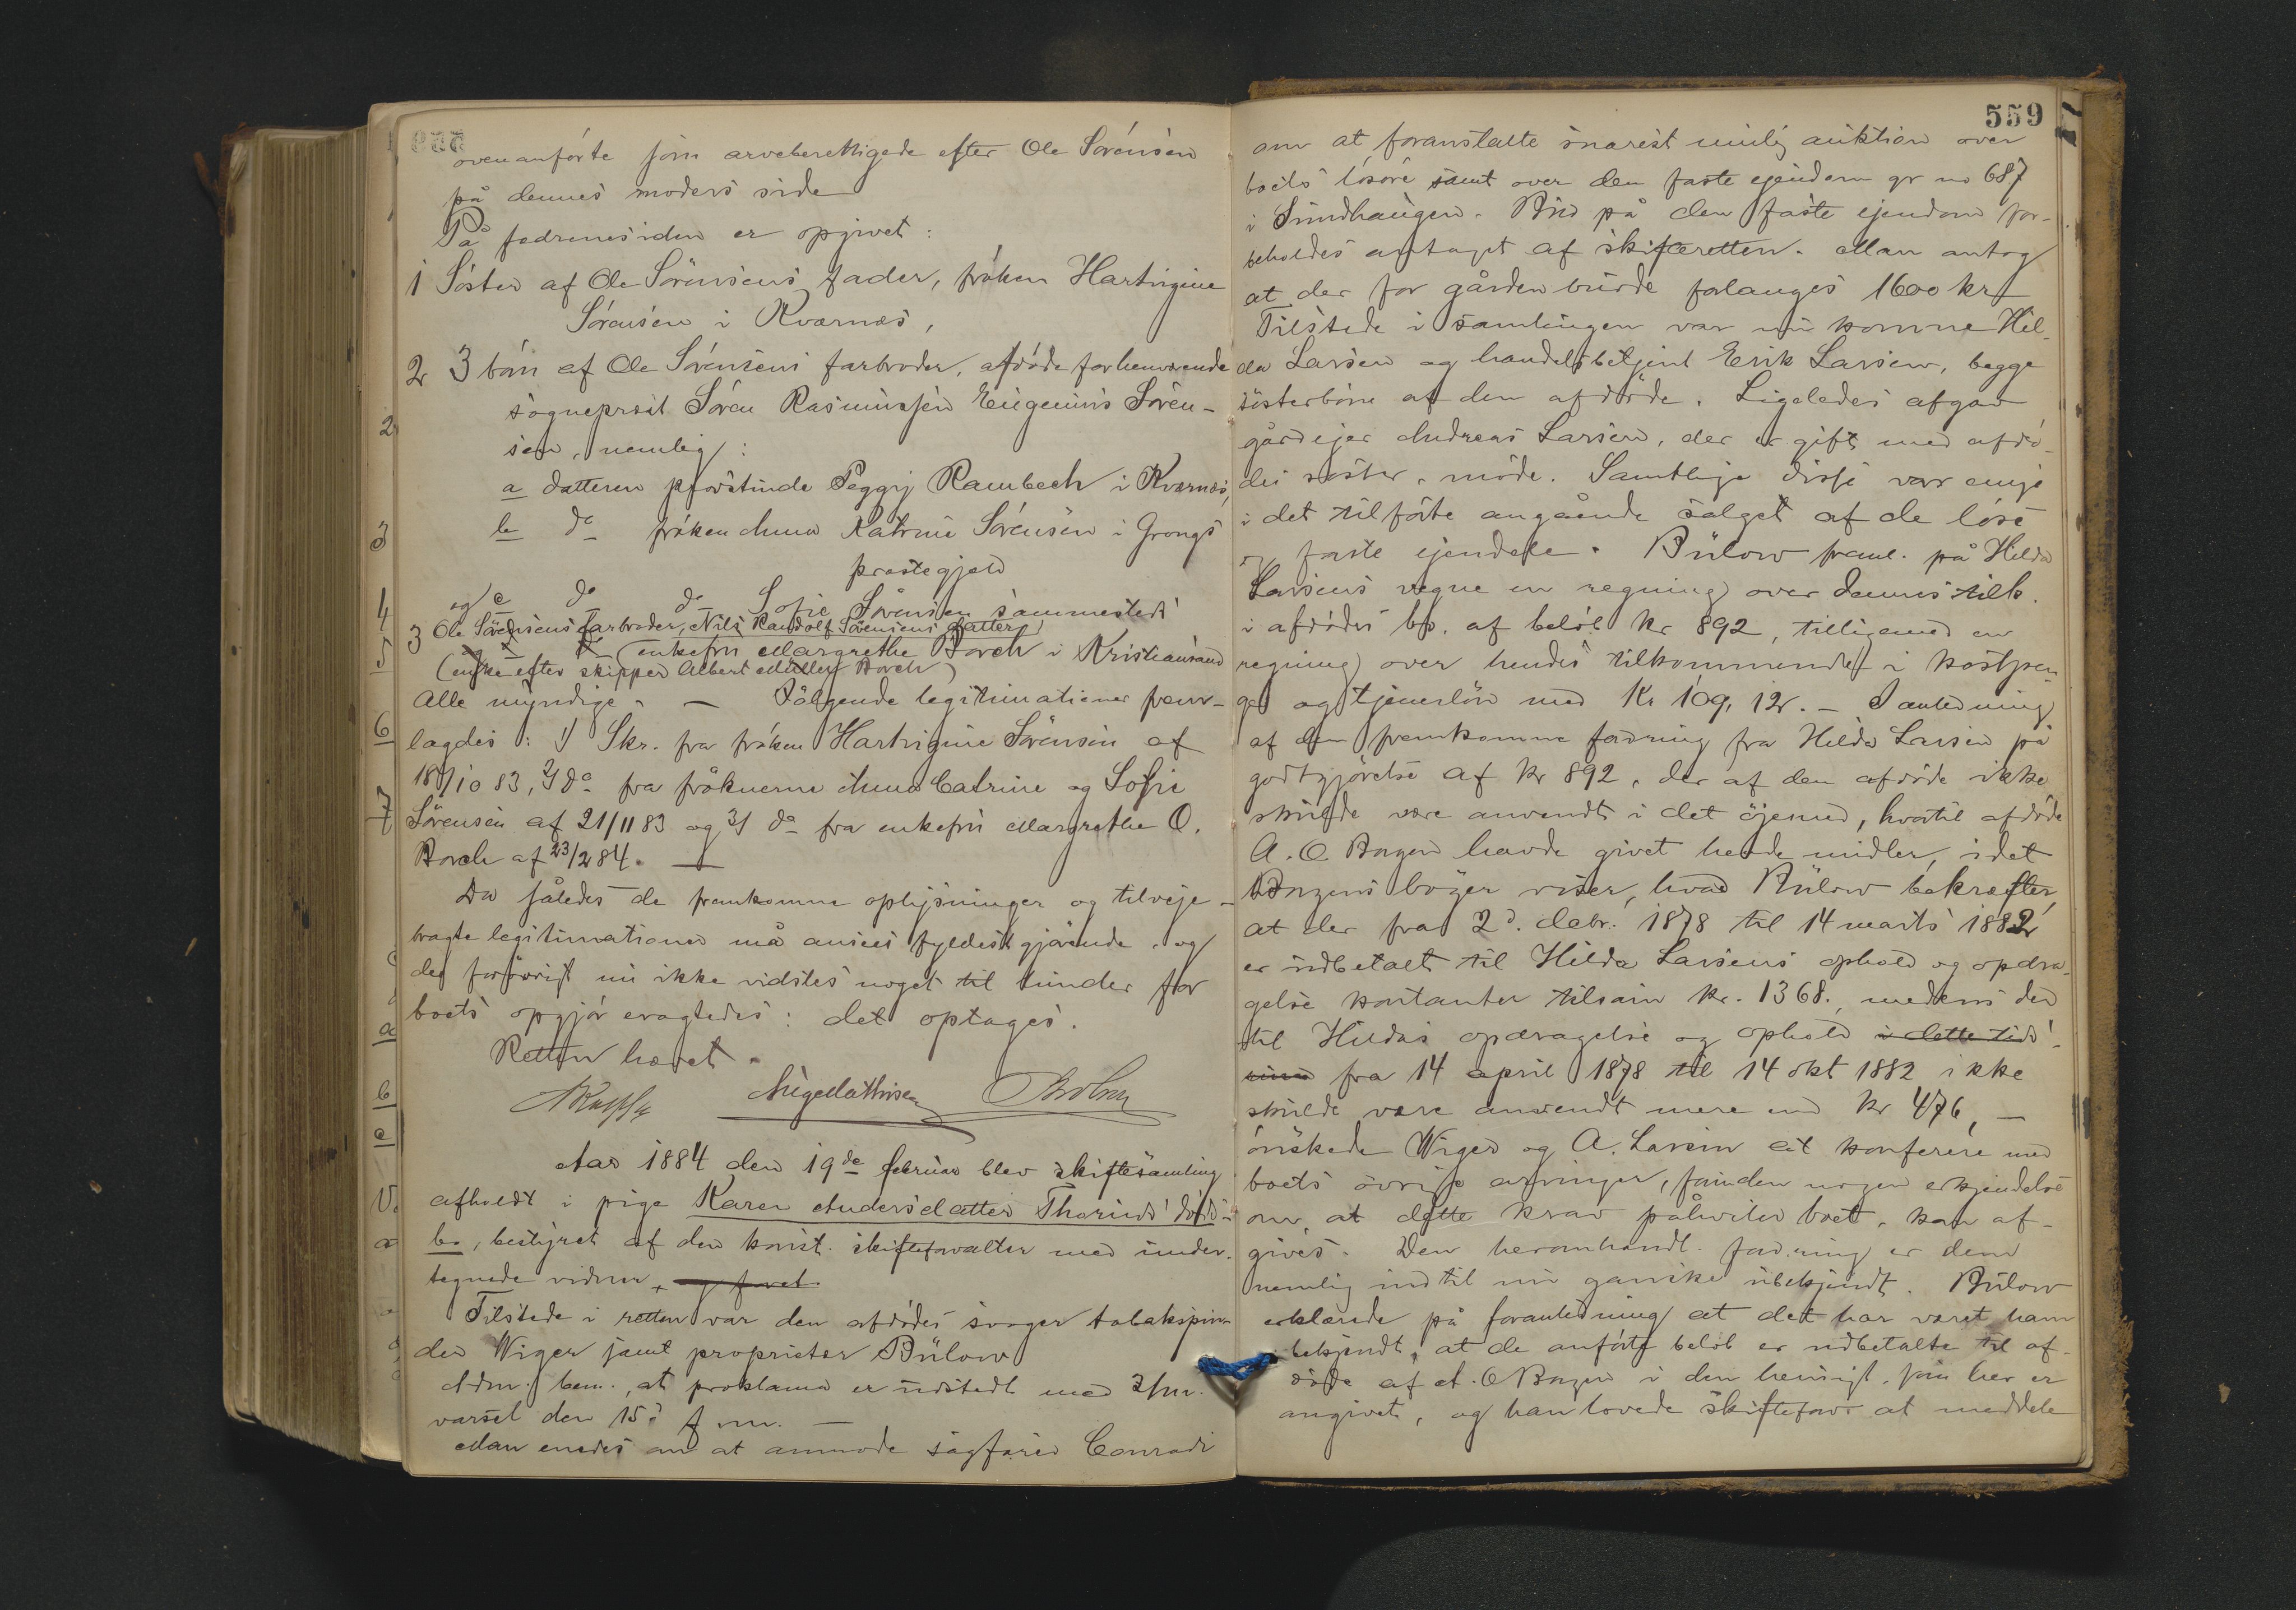 ovenanförte som arveberettigede efter Ole Sörensen
på dennes moders side
På fædrenesiden er opgivet:
1 Söster af Ole Sörensens fader, fröken Hartvigine
Sörensen i Kværnæs,
2 3 börn af Ole Sörensens farbroder, afdöde forhenværende
sogneprest Sören Rasmussen Eugenius Sören-
sen, nemlig:
a datteren provstinde Peggy Rambech i Kværnæs,
b do fröken Anna Katrine Sörensen i Grongs
præstegjeld
og c do do Sofie Sörensen sammesteds
3 Ole Sörensens farbroder, Nils Randolf Sörensens datter,
enkefru Margrethe Borch i Kristiansand
(enke efter skipper Albert Müller Borch)
Alle myndige. — Fölgende legitimationer frem-
lagdes: 1) Skr. fra fröken Hartvigine Sörensen af
18/10 83, 2) do fra fröknerne Anna Catrine og Sofie
Sörensen af 21/11 83 og 3) do fra enkefru Margrethe O.
Borch af 23/2 84. —
Da således de fremkomne oplysninger og tilveje-
bragte legitimationer må ansees fyldestgjörende, og
der forövrigt nu ikke vidstes noget til hinder for
boets opgjör eragtedes: det optages.
Retten hævet.
Aug Mathisen
Aar 1884 den 19de februar blev skiftesamling
afholdt i pige Karen Andersdatter Thorsuds döds-
bo, bestyret af den konst. skifteforvalter med under-
tegnede vidner, og foret
Tilstede i retten var den afdödes svoger tobakspin-
der Wiger samt proprietær Bülow
Adm. bem., at proklama er udstedt med 3/m.
varsel den 15de f. m. —
Man enedes om at anmode sagförer Conradi
559
om at foranstalte snarest mulig auktion over
boets lösöre samt over den faste ejendom gr no 687
i Sundhaugen. Bud på den faste ejendom for-
beholdes antaget af skifteretten. Man antog
at der for gården burde forlanges 1600 kr
Tilstede i samlingen var nu komne Hil-
da Larsen og handelsbetjent Erik Larsen, begge
sösterbörn af den afdöde. Ligeledes afgav
gårdejer Andreas Larsen, der er gift med afdö-
des söster, möde. Samtlige disse var enige
i det tilförte angående salget af de löse
og faste ejendele. Bülow freml. på Hilda
Larsens vegne en regning over dennes tilk.
i afdödes bo. af belöb kr 892, tilligemed en
regning over hendes tilkommende i kostpen-
ge og tjenerlön med kr 109, 12. — I anledning
af den fremkomne fordring fra Hilda Larsen på
godtgjörelse af kr 892, der af den afdöde ikke
skulde være anvendt i det öjemed, hvortil afdöde
A. O. Bagen havde givet hende midler, idet
Bagens böger viser, hvad Bülow bekræfter,
at der fra 2d. debr. 1878 til 14 marts 1882
er udbetalt til Hilda Larsens ophold og opdra-
gelse kontanter tilsam kr. 1368., medens der
til Hildas opdragelse og ophold i dette tids-
rum fra 14 april 1878 til 14 okt 1882 ikke
skulde være anvendt mere end kr 476, —
önskede Wiger og A. Larsen at konferere med
boets övrige arvinger, forinden nogen erkjendelse
om, at dette krav påhviler boet, kan af-
gives. Den heromhandl. fordring er dem
nemlig indtil nu ganske ubekjendt. Bülow
erklærede på foranledning at det har været ham
bekjendt, at de anförte belöb er udbetalte til af-
döde af A. O Bagen i den hensigt, som her er
angivet, og han lovede skifteforv at meddele